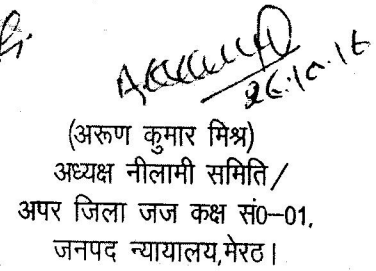 26.10.16
(अरूण कुमार मिश्र)
अध्यक्ष नीलामी समिति/
अपर जिला जज कक्ष सं0-01,
जनपद न्यायालय,मेरठ।